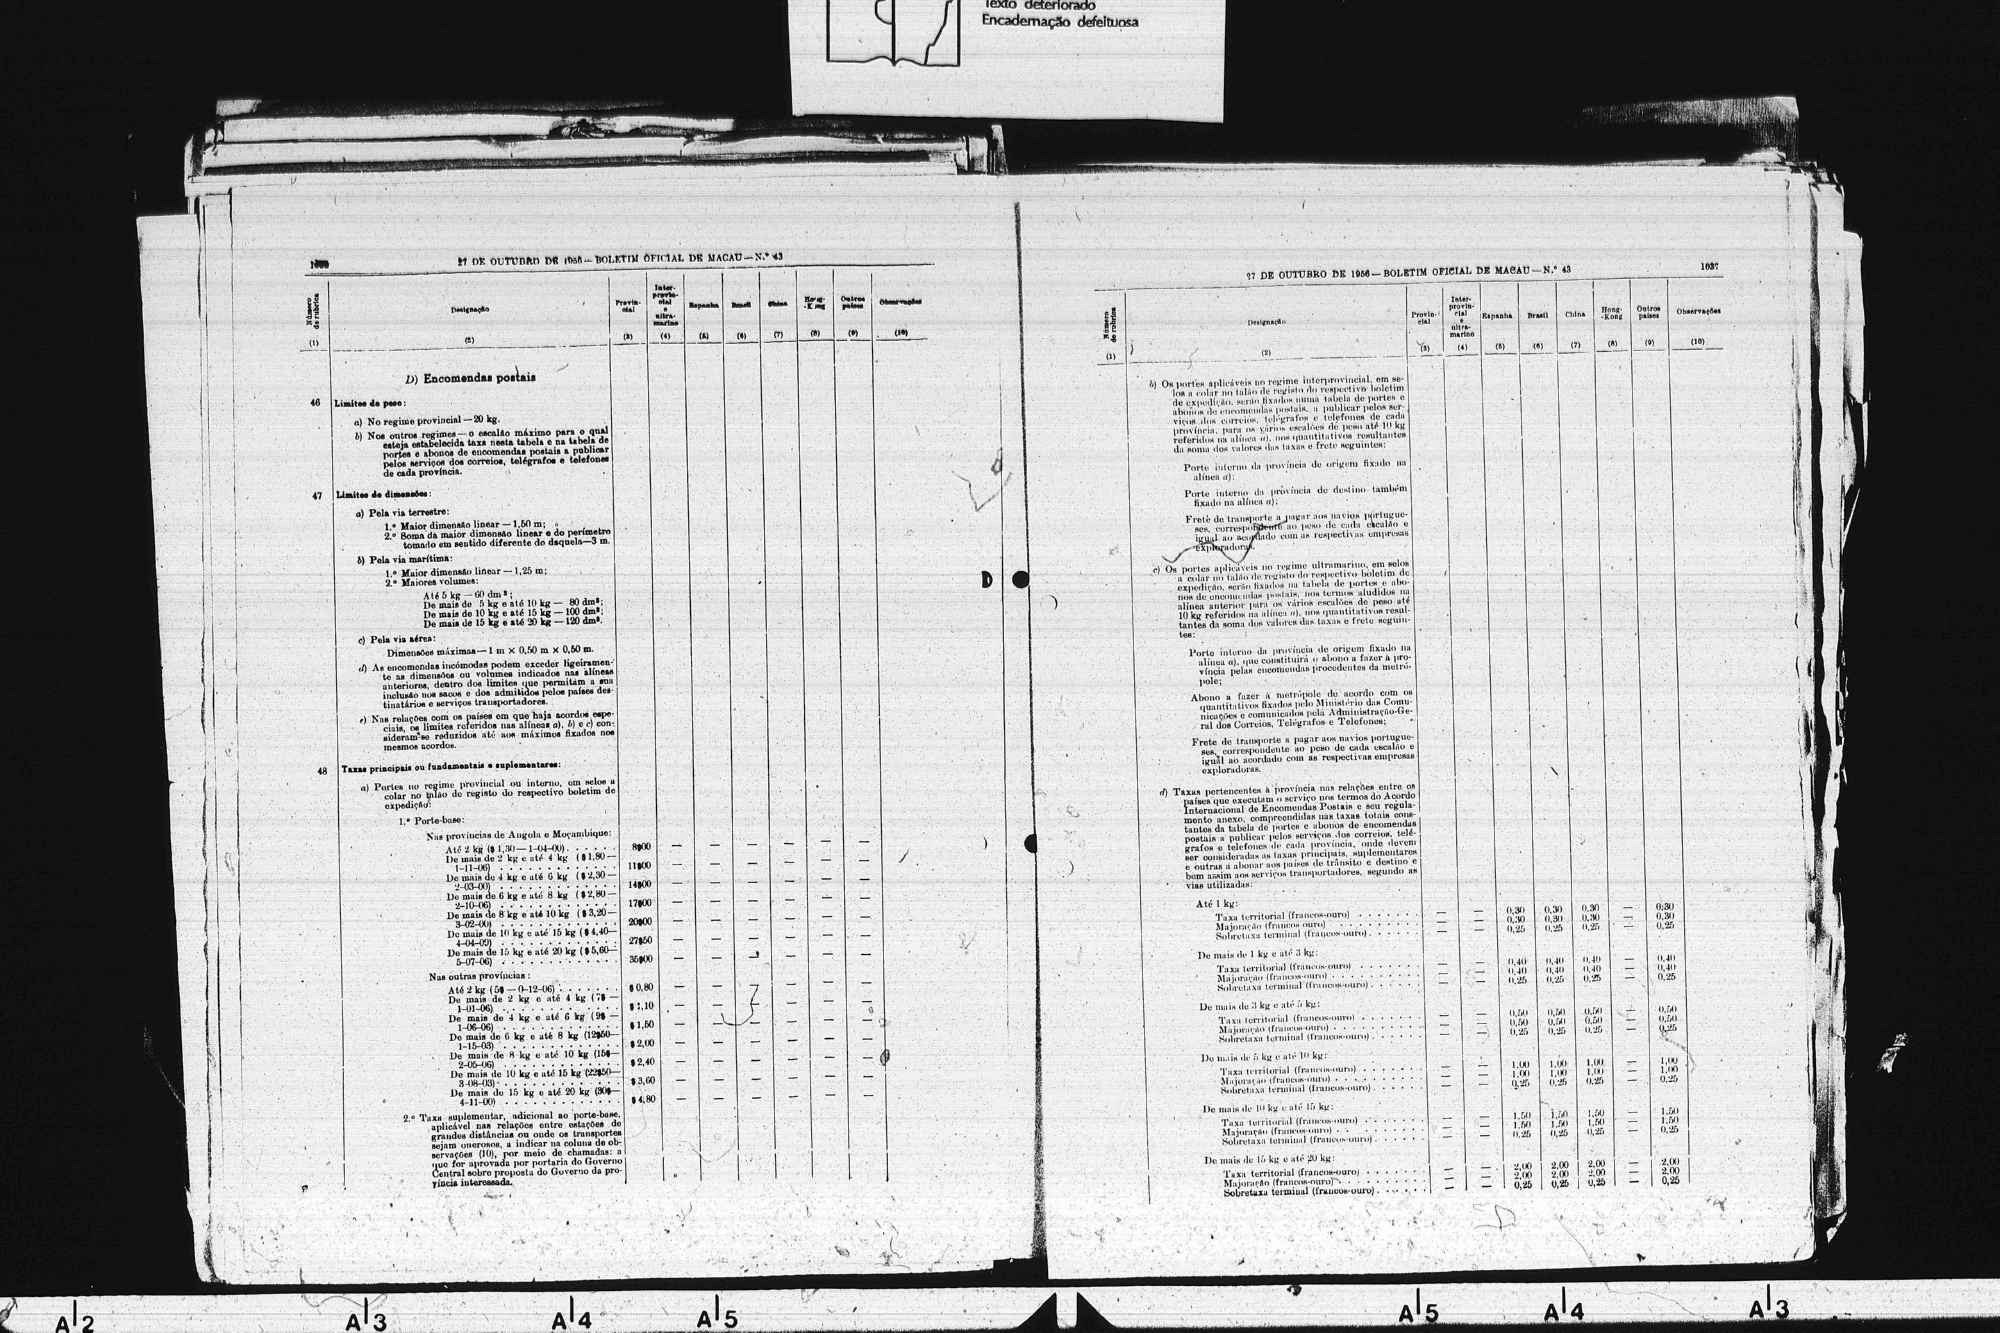 Texto deteriorado
Encadernação defeituosa
27 DE OUTUBRO DE 1956 — BOLETIM OFICIAL DE MACAU — N.º 43
Número de rubrica
(1)
Designação
(2)
Provin-
cial
(3)
Inter-
provin-
cial
e
ultra-
marino
(4)
Espanha
(5)
Brasil
(6)
China
(7)
Hong-
-Kong
(8)
Outros
países
(9)
Observações
(10)
D) Encomendas postais
46 Limites de peso:
a) No regime provincial — 20 kg.
b) Nos outros regimes — o escalão máximo para o qual
esteja estabelecida taxa nesta tabela e na tabela de
portes e abonos de encomendas postais a publicar
pelos serviços dos correios, telégrafos e telefones
de cada província.
47 Limites de dimensões:
a) Pela via terrestre:
1.º Maior dimensão linear — 1,50 m;
2.º Soma da maior dimensão linear e do perímetro
tomado em sentido diferente do daquela — 3 m.
b) Pela via marítima:
1.º Maior dimensão linear — 1,25 m;
2.º Maiores volumes:
Até 5 kg — 60 dm³;
De mais de 5 kg e até 10 kg — 80 dm³;
De mais de 10 kg e até 15 kg — 100 dm³;
De mais de 15 kg e até 20 kg — 120 dm³.
c) Pela via aérea:
Dimensões máximas — 1 m × 0,50 m × 0,50 m.
d) As encomendas incómodas podem exceder ligeiramen-
te as dimensões ou volumes indicados nas alíneas
anteriores, dentro dos limites que permitam a sua
inclusão nos sacos e dos admitidos pelos países des-
tinatários e serviços transportadores.
e) Nas relações com os países em que haja acordos espe-
ciais, os limites referidos nas alíneas a), b) e c) con-
sideram-se reduzidos até aos máximos fixados nos
mesmos acordos.
48 Taxas principais ou fundamentais e suplementares:
a) Portes no regime provincial ou interno, em selos a
colar no talão de registo do respectivo boletim de
expedição:
1.º Porte-base:
Nas províncias de Angola e Moçambique:
Até 2 kg ($ 1,30 — 1-04-00) . . . . . . 8$00 — — — — — —
De mais de 2 kg e até 4 kg ($ 1,80 —
1-11-06) . . . . . . . . . . . . . 11$00 — — — — — —
De mais de 4 kg e até 6 kg ($ 2,30 —
2-03-00) . . . . . . . . . . . . . 14$00 — — — — — —
De mais de 6 kg e até 8 kg ($ 2,80 —
2-10-06) . . . . . . . . . . . . . 17$00 — — — — — —
De mais de 8 kg e até 10 kg ($ 3,20 —
3-02-00) . . . . . . . . . . . . . 20$00 — — — — — —
De mais de 10 kg e até 15 kg ($ 4,40 —
4-04-09) . . . . . . . . . . . . . 27$50 — — — — — —
De mais de 15 kg e até 20 kg ($ 5,60 —
5-07-06) . . . . . . . . . . . . . 35$00 — — — — — —
Nas outras províncias:
Até 2 kg (5$ — 0-12-06) . . . . . . . $ 0,80 — — — — — —
De mais de 2 kg e até 4 kg (7$ —
1-01-06) . . . . . . . . . . . . . $ 1,10 — — — — — —
De mais de 4 kg e até 6 kg (9$ —
1-06-06) . . . . . . . . . . . . . $ 1,50 — — — — — —
De mais de 6 kg e até 8 kg (12$50 —
1-15-03) . . . . . . . . . . . . . $ 2,00 — — — — — —
De mais de 8 kg e até 10 kg (15$ —
2-05-06) . . . . . . . . . . . . . $ 2,40 — — — — — —
De mais de 10 kg e até 15 kg (22$50 —
3-08-03) . . . . . . . . . . . . . $ 3,60 — — — — — —
De mais de 15 kg e até 20 kg (30$ —
4-11-00) . . . . . . . . . . . . . $ 4,80 — — — — — —
2.º Taxa suplementar, adicional ao porte-base,
aplicável nas relações entre estações de
grandes distâncias ou onde os transportes
sejam onerosos, a indicar na coluna de ob-
servações (10), por meio de chamadas: a
que for aprovada por portaria do Governo
Central sobre proposta do Governo da pro-
víncia interessada.
27 DE OUTUBRO DE 1956 — BOLETIM OFICIAL DE MACAU — N.º 43 1037
Número de rubrica
(1)
Designação
(2)
Provin-
cial
(3)
Inter-
provin-
cial
e
ultra-
marino
(4)
Espanha
(5)
Brasil
(6)
China
(7)
Hong-
-Kong
(8)
Outros
países
(9)
Observações
(10)
b) Os portes aplicáveis no regime interprovincial, em se-
los a colar no talão de registo do respectivo boletim
de expedição, serão fixados numa tabela de portes e
abonos de encomendas postais, a publicar pelos ser-
viços dos correios, telégrafos e telefones de cada
província, para os vários escalões de peso até 10 kg
referidos na alínea a), nos quantitativos resultantes
da soma dos valores das taxas e frete seguintes:
Porte interno da província de origem fixado na
alínea a);
Porte interno da província de destino também
fixado na alínea a);
Frete de transporte a pagar aos navios portugue-
ses, correspondente ao peso de cada escalão e
igual ao acordado com as respectivas empresas
exploradoras.
c) Os portes aplicáveis no regime ultramarino, em selos
a colar no talão de registo do respectivo boletim de
expedição, serão fixados na tabela de portes e abo-
nos de encomendas postais, nos termos aludidos na
alínea anterior para os vários escalões de peso até
10 kg referidos na alínea a), nos quantitativos resul-
tantes da soma dos valores das taxas e frete seguin-
tes:
Porte interno da província de origem fixado na
alínea a), que constituirá o abono a fazer à pro-
víncia pelas encomendas procedentes da metró-
pole;
Abono a fazer à metrópole de acordo com os
quantitativos fixados pelo Ministério das Comu-
nicações e comunicados pela Administração-Ge-
ral dos Correios, Telégrafos e Telefones;
Frete de transporte a pagar aos navios portugue-
ses, correspondente ao peso de cada escalão e
igual ao acordado com as respectivas empresas
exploradoras.
d) Taxas pertencentes à província nas relações entre os
países que executam o serviço nos termos do Acordo
Internacional de Encomendas Postais e seu regula-
mento anexo, compreendidas nas taxas totais cons-
tantes da tabela de portes e abonos de encomendas
postais a publicar pelos serviços dos correios, telé-
grafos e telefones de cada província, onde devem
ser consideradas as taxas principais, suplementares
e outras a abonar aos países de trânsito e destino e
bem assim aos serviços transportadores, segundo as
vias utilizadas:
Até 1 kg:
Taxa territorial (francos-ouro) . . . . . . . — — 0,30 0,30 0,30 — 0,30
Majoração (francos-ouro) . . . . . . . . . — — 0,30 0,30 0,30 — 0,30
Sobretaxa terminal (francos-ouro) . . . . . — — 0,25 0,25 0,25 — 0,25
De mais de 1 kg e até 3 kg:
Taxa territorial (francos-ouro) . . . . . . . — — 0,40 0,40 0,40 — 0,40
Majoração (francos-ouro) . . . . . . . . . — — 0,40 0,40 0,40 — 0,40
Sobretaxa terminal (francos-ouro) . . . . . — — 0,25 0,25 0,25 — 0,25
De mais de 3 kg e até 5 kg:
Taxa territorial (francos-ouro) . . . . . . . — — 0,50 0,50 0,50 — 0,50
Majoração (francos-ouro) . . . . . . . . . — — 0,50 0,50 0,50 — 0,50
Sobretaxa terminal (francos-ouro) . . . . . — — 0,25 0,25 0,25 — 0,25
De mais de 5 kg e até 10 kg:
Taxa territorial (francos-ouro) . . . . . . . — — 1,00 1,00 1,00 — 1,00
Majoração (francos-ouro) . . . . . . . . . — — 1,00 1,00 1,00 — 1,00
Sobretaxa terminal (francos-ouro) . . . . . — — 0,25 0,25 0,25 — 0,25
De mais de 10 kg e até 15 kg:
Taxa territorial (francos-ouro) . . . . . . . — — 1,50 1,50 1,50 — 1,50
Majoração (francos-ouro) . . . . . . . . . — — 1,50 1,50 1,50 — 1,50
Sobretaxa terminal (francos-ouro) . . . . . — — 0,25 0,25 0,25 — 0,25
De mais de 15 kg e até 20 kg:
Taxa territorial (francos-ouro) . . . . . . . — — 2,00 2,00 2,00 — 2,00
Majoração (francos-ouro) . . . . . . . . . — — 2,00 2,00 2,00 — 2,00
Sobretaxa terminal (francos-ouro) . . . . . — — 0,25 0,25 0,25 — 0,25
D
A2 A3 A4 A5 A5 A4 A3